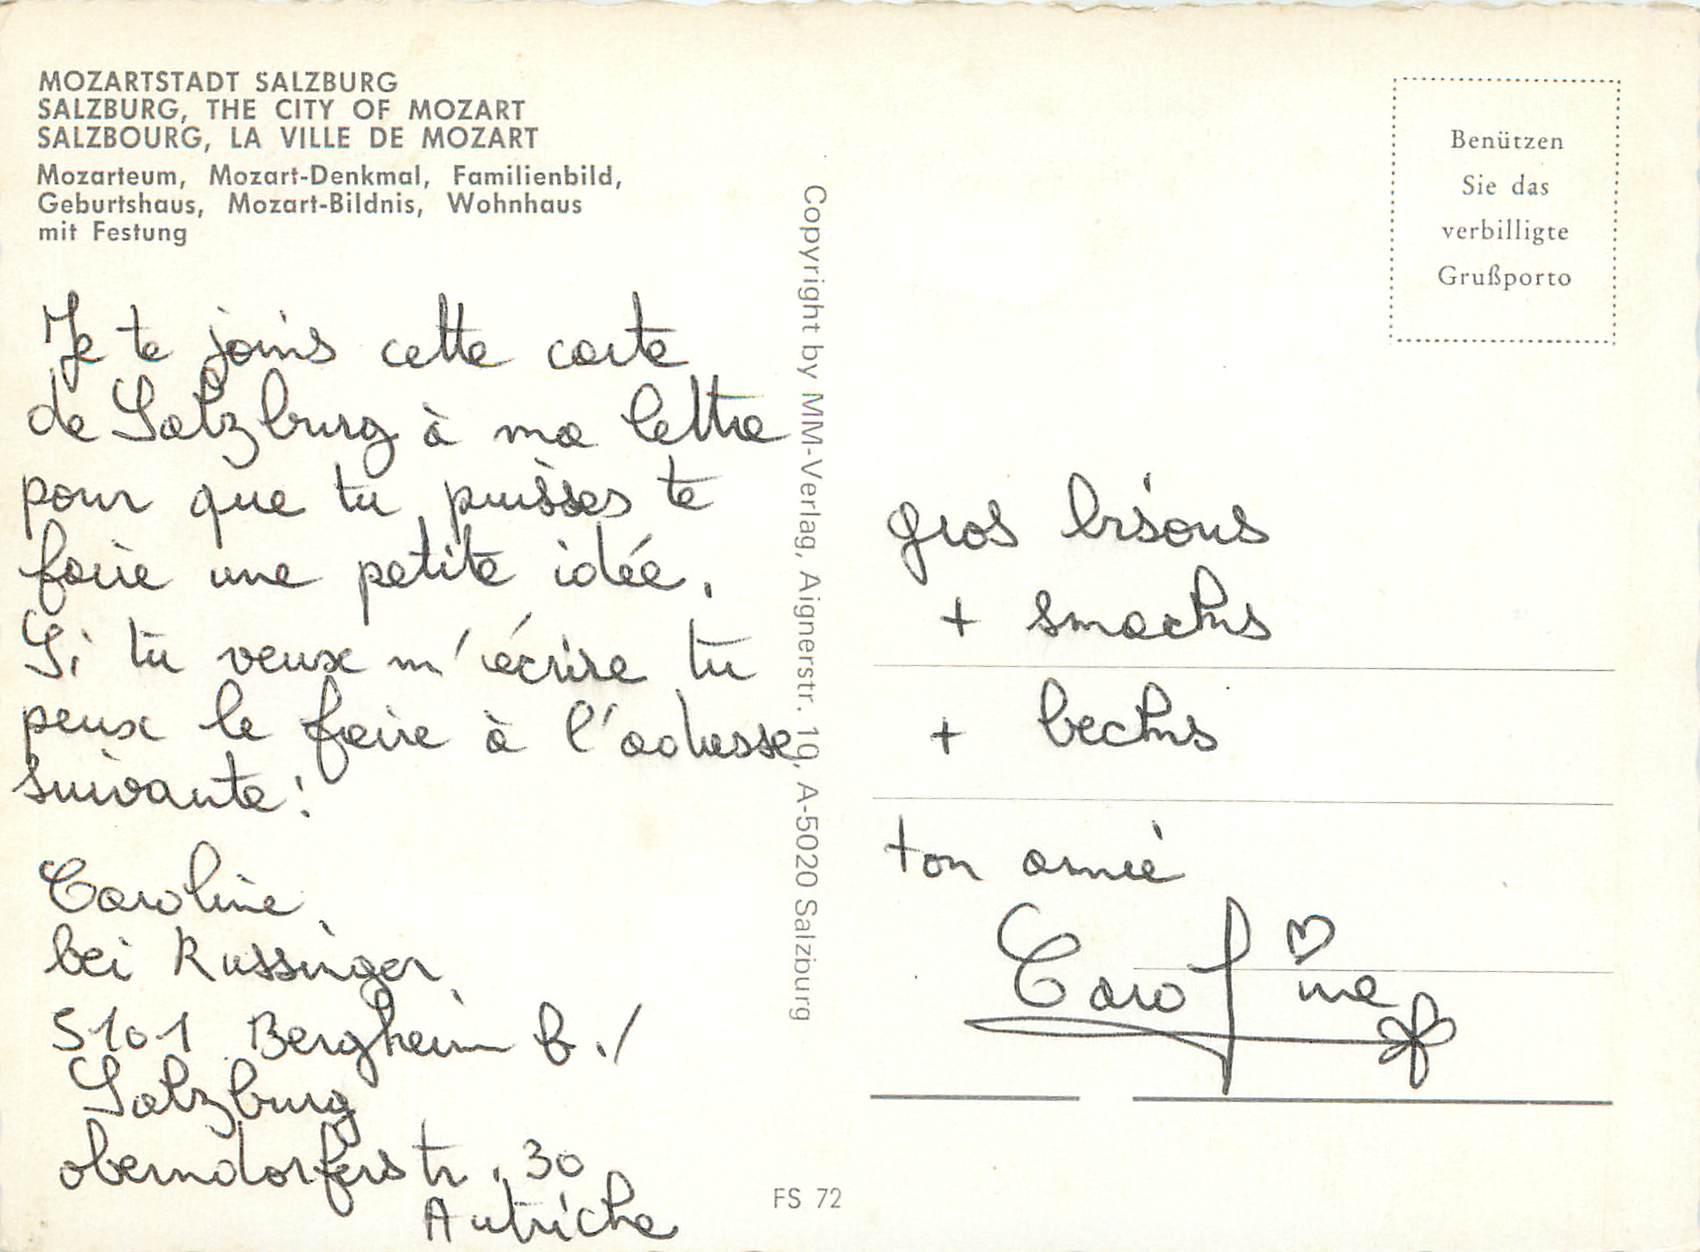 MOZARTSTADT SALZBURG
SALZBURG, THE CITY OF MOZART
SALZBOURG, LA VILLE DE MOZART
Mozarteum, Mozart-Denkmal, Familienbild,
Geburtshaus, Mozart-Bildnis, Wohnhaus
mit Festung
Je te joins cette carte
de Salzburg à ma lettre
pour que tu puisses te
faire une petite idée.
Si tu veux m'écrire tu
peux le faire à l'adresse
suivante:
Caroline
bei Russinger
5101 Bergheim b./
Salzburg
oberndorferstr. 30
Autriche
Copyright by MM-Verlag, Aignerstr. 10, A-5020 Salzburg
FS 72
Benützen
Sie das
verbilligte
Grußporto
gros bisous
+ smacks
+ becks
ton amie
Caroline